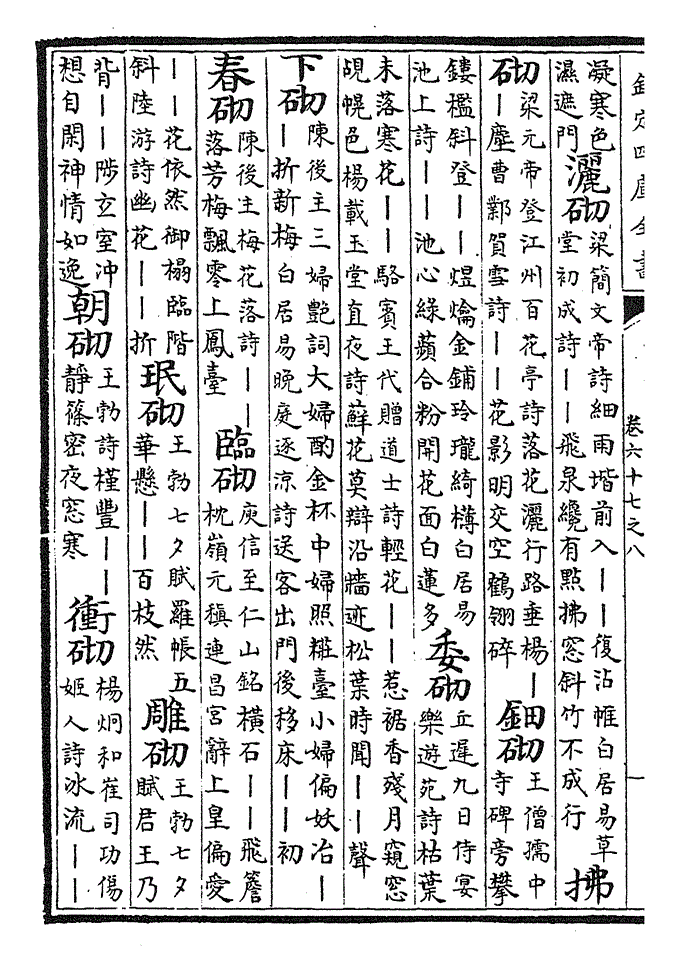 欽定四庫全書
卷六十七之八
一
凝寒色
濕遮門
灑砌
梁簡文帝詩細雨堦前入——復沾帷白居易草
堂初成詩——飛泉纔有點拂窓斜竹不成行
拂
砌
梁元帝登江州百花亭詩落花灑行路垂楊—
—塵曹鄴賀雪詩——花影明交空鶴翎碎
鈿砌
王僧孺中
寺碑旁攀
鏤檻斜登——煜爚金鋪玲瓏綺欂白居易
池上詩——池心綠蘋合粉開花面白蓮多
委砌
丘遲九日侍宴
樂遊苑詩枯葉
未落寒花——駱賓王代贈道士詩輕花——惹裾香殘月窺窓
覘幌色楊載玉堂直夜詩蘚花莫辯沿牆迹松葉時聞——聲
下砌
陳後主三婦艷詞大婦酌金杯中婦照糚臺小婦偏妖冶—
—折新梅白居易晚庭逐涼詩送客出門後移床——初
春砌
陳後主梅花落詩——
落芳梅飄零上鳳臺
臨砌
庾信至仁山銘橫石——飛簷
枕嶺元稹連昌宮辭上皇偏愛
——花依然御榻臨階
斜陸游詩幽花——折
珉砌
王勃七夕賦羅帳五
華懸——百枝然
雕砌
王勃七夕
賦君王乃
背——陟玄室沖
想自閑神情如逸
朝砌
王勃詩槿豐——
靜篠密夜窓寒
衝砌
楊炯和崔司功傷
姬人詩冰流——